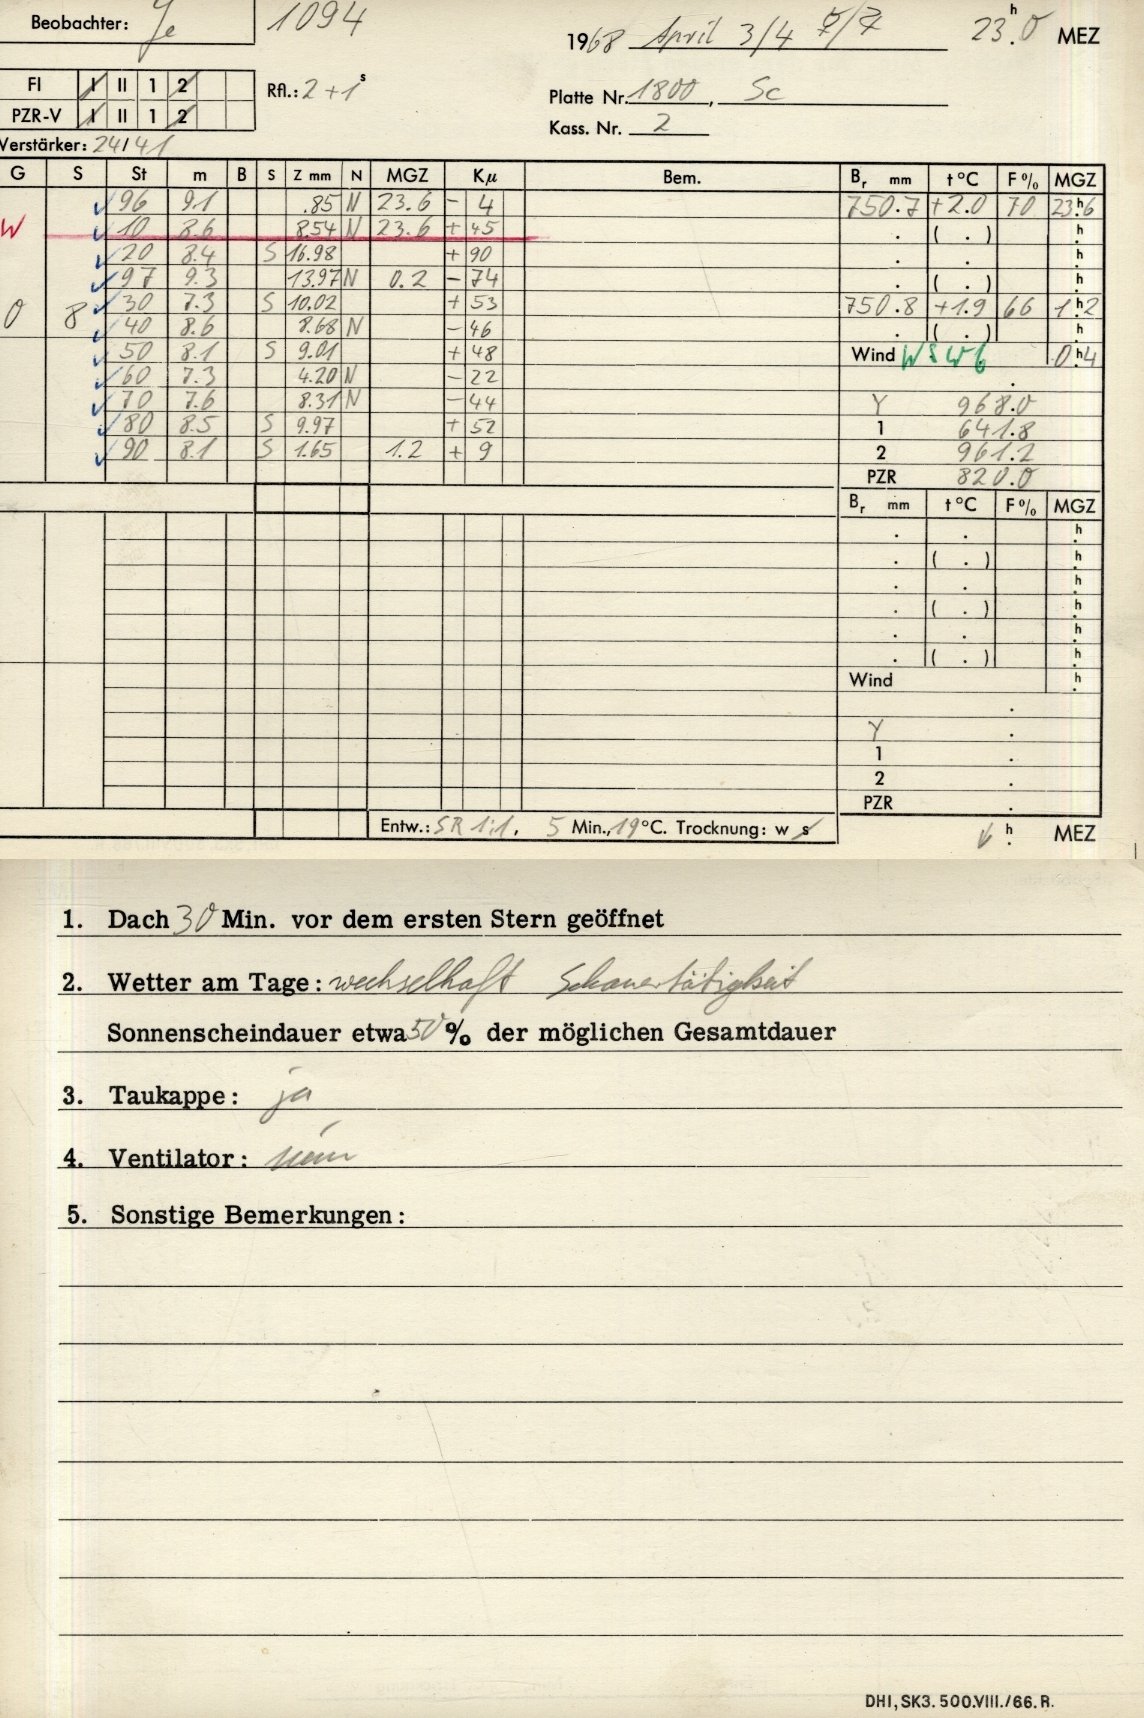 Beobachter: Je 1094 1968 April 3/4 23.h0 MEZ
FI I II 1 2 Rfl.: 2+1s Platte Nr. 1800, Sc
PZR-V I II 1 2 Kass. Nr. 2
Verstärker: 24/41
G S St m B S Z mm N MGZ Kµ Bem. Br mm t°C F% MGZ
96 9.1 .85 N 23.6 - 4 750.7 +2.0 70 23.h6
W 10 8.6 8.54 N 23.6 + 45 . ( . ) h.
20 8.4 S 16.98 + 90 . . h.
97 9.3 13.97 N 0.2 - 74 . ( . ) h.
0 8 30 7.3 S 10.02 + 53 750.8 +1.9 66 1.h2
40 8.6 8.68 N - 46 . ( . ) h.
50 8.1 S 9.01 + 48 Wind WSW6 0.h4
60 7.3 4.20 N - 22 .
70 7.6 8.31 N - 44 Y 968.0
80 8.5 S 9.97 + 52 1 641.8
90 8.1 S 1.65 1.2 + 9 2 961.2
PZR 820.0
Br mm t°C F% MGZ
. . h.
. ( . ) h.
. . h.
. ( . ) h.
. . h.
. ( . ) h.
Wind h.
.
Y .
1 .
2 .
PZR .
Entw.: SR 1:1, 5 Min., 19°C. Trocknung: w s h. MEZ
1. Dach 30 Min. vor dem ersten Stern geöffnet
2. Wetter am Tage: wechselhaft Schauertätigkeit
Sonnenscheindauer etwa 50 % der möglichen Gesamtdauer
3. Taukappe: ja
4. Ventilator: nein
5. Sonstige Bemerkungen:
DHI, SK3. 500.VIII./66. R.